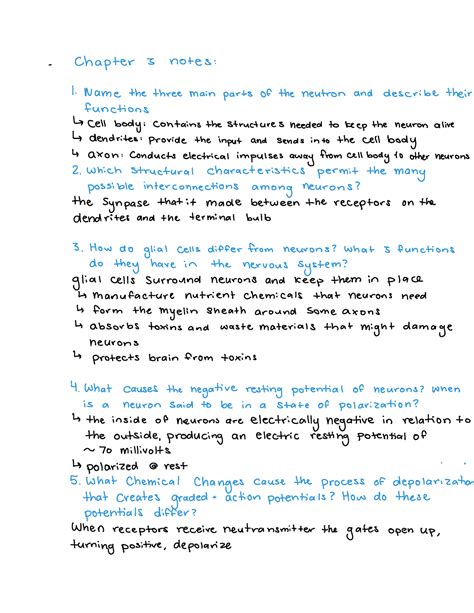 Chapter 3 notes:
1. Name the three main parts of the neutron and describe their
functions
↳ Cell body: Contains the structures needed to keep the neuron alive
↳ dendrites: Provide the input and sends into the cell body
↳ axon: Conducts electrical impulses away from cell body to other neurons
2. Which structural characteristics permit the many
possible interconnections among neurons?
the Synpase that it made between the receptors on the
dendrites and the terminal bulb
3. How do glial cells differ from neurons? What 3 functions
do they have in the nervous system?
glial cells surround neurons and keep them in place
↳ manufacture nutrient chemicals that neurons need
↳ form the myelin sheath around some axons
↳ absorbs toxins and waste materials that might damage
neurons
↳ protects brain from toxins
4. What causes the negative resting potential of neurons? When
is a neuron said to be in a state of polarization?
↳ the inside of neurons are electrically negative in relation to
the outside, producing an electric resting potential of
~ 70 millivolts
↳ polarized @ rest
5. What Chemical Changes cause the process of depolarization
that creates graded + action potentials? How do these
potentials differ?
When receptors receive neutransmitter the gates open up,
turning positive, depolarize